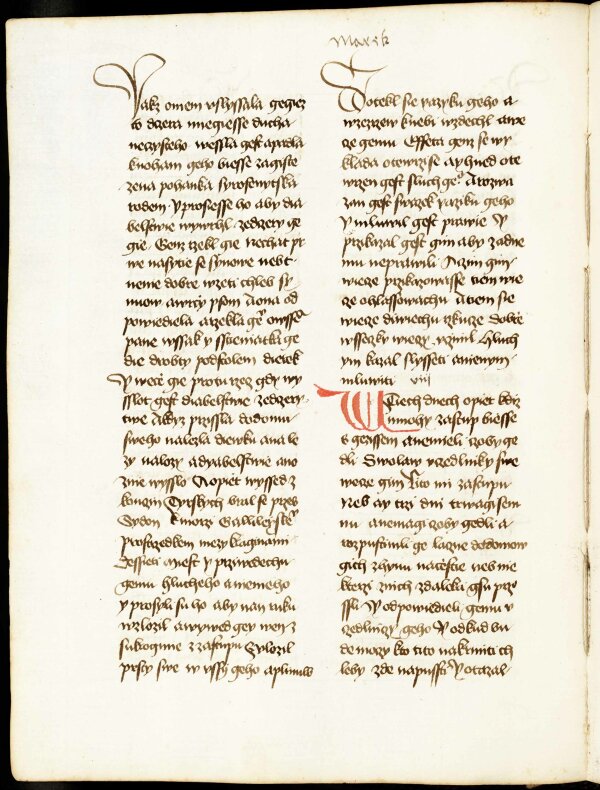 Marek
Yakz o niem vslyssala gegiez
to dzera mnegiesse ducha
neczysteho wessla gest a padla
knoham geho biesse zagiste
zena pohanka syrofenytska
rodem y prosiesse ho aby dia
belstwie wywrhl zedczery ge
gie Genz rzekl gie nechat pr
we nasytie se synowe nebt
nenie dobre wzieti chleb sy
nuow a wrcy psom Aona od
powiediela a rzekla ge ovsse
pane wssak y ssteniatka ge
die drobty podstolem dietek
Y wece gie protu rzecz gdy wy
sslot gest diabelstwie zedczery
twe A kdyz przissla domu
sweho nalezla diewku ana le
zy na lozy a dyabelstwie ano
znie wysslo A opiet wyssed z
konczin Tyrskych bral se przes
Sydon k morzy Galileyske
prostrzedkem mezy kraginami
Dessieti miest y przywedechu
gemu hlucheho a niemeho
y prosyli su ho aby nan ruku
wzlozil a wywed gey wen z
sukromie z zastupu Wlozil
prsty swe w vssy geho a plinuw
Dotekl sie yazyku geho a
wzezrzew knebi wzdechl a rze
ze gemu Effeta genz se wy
klada otewrzi se a y hned ote
wrzen gest sluch geo A rozwa
zan gest swazek yaziku geho
Y mluwil gest prawie Y
przikazal gest gim aby zadne
mu neprawili A czim gim
wieze przikazowasse tiem wie
ze ohlassowachu A tiem sie
wieze diwiechu rzkuze Dobrze
wsseczky wieczy vczinil Hluch
ym kazal slysseti a niemym
mluwiti viij
W Tiech dnech opiet kdiz
mnohy zastup biesse
s gezissem a nemieli czoby ge
dli Swolaw vczedlniky swe
wece gim Lito mi zastupu
Neb ay trzi dni trwagi se m
nu a nemagi czoby gedli a
rozpustimli ge laczne do domow
gich zhynu na cestie neb nie
kterzi znich zdaleka gsu przi
ssli Y odpowiedieli gemu v
czedlniczy geho Y odkud bu
de moczy kto tito nakrmiti ch
leby zde na pussti Y otazal